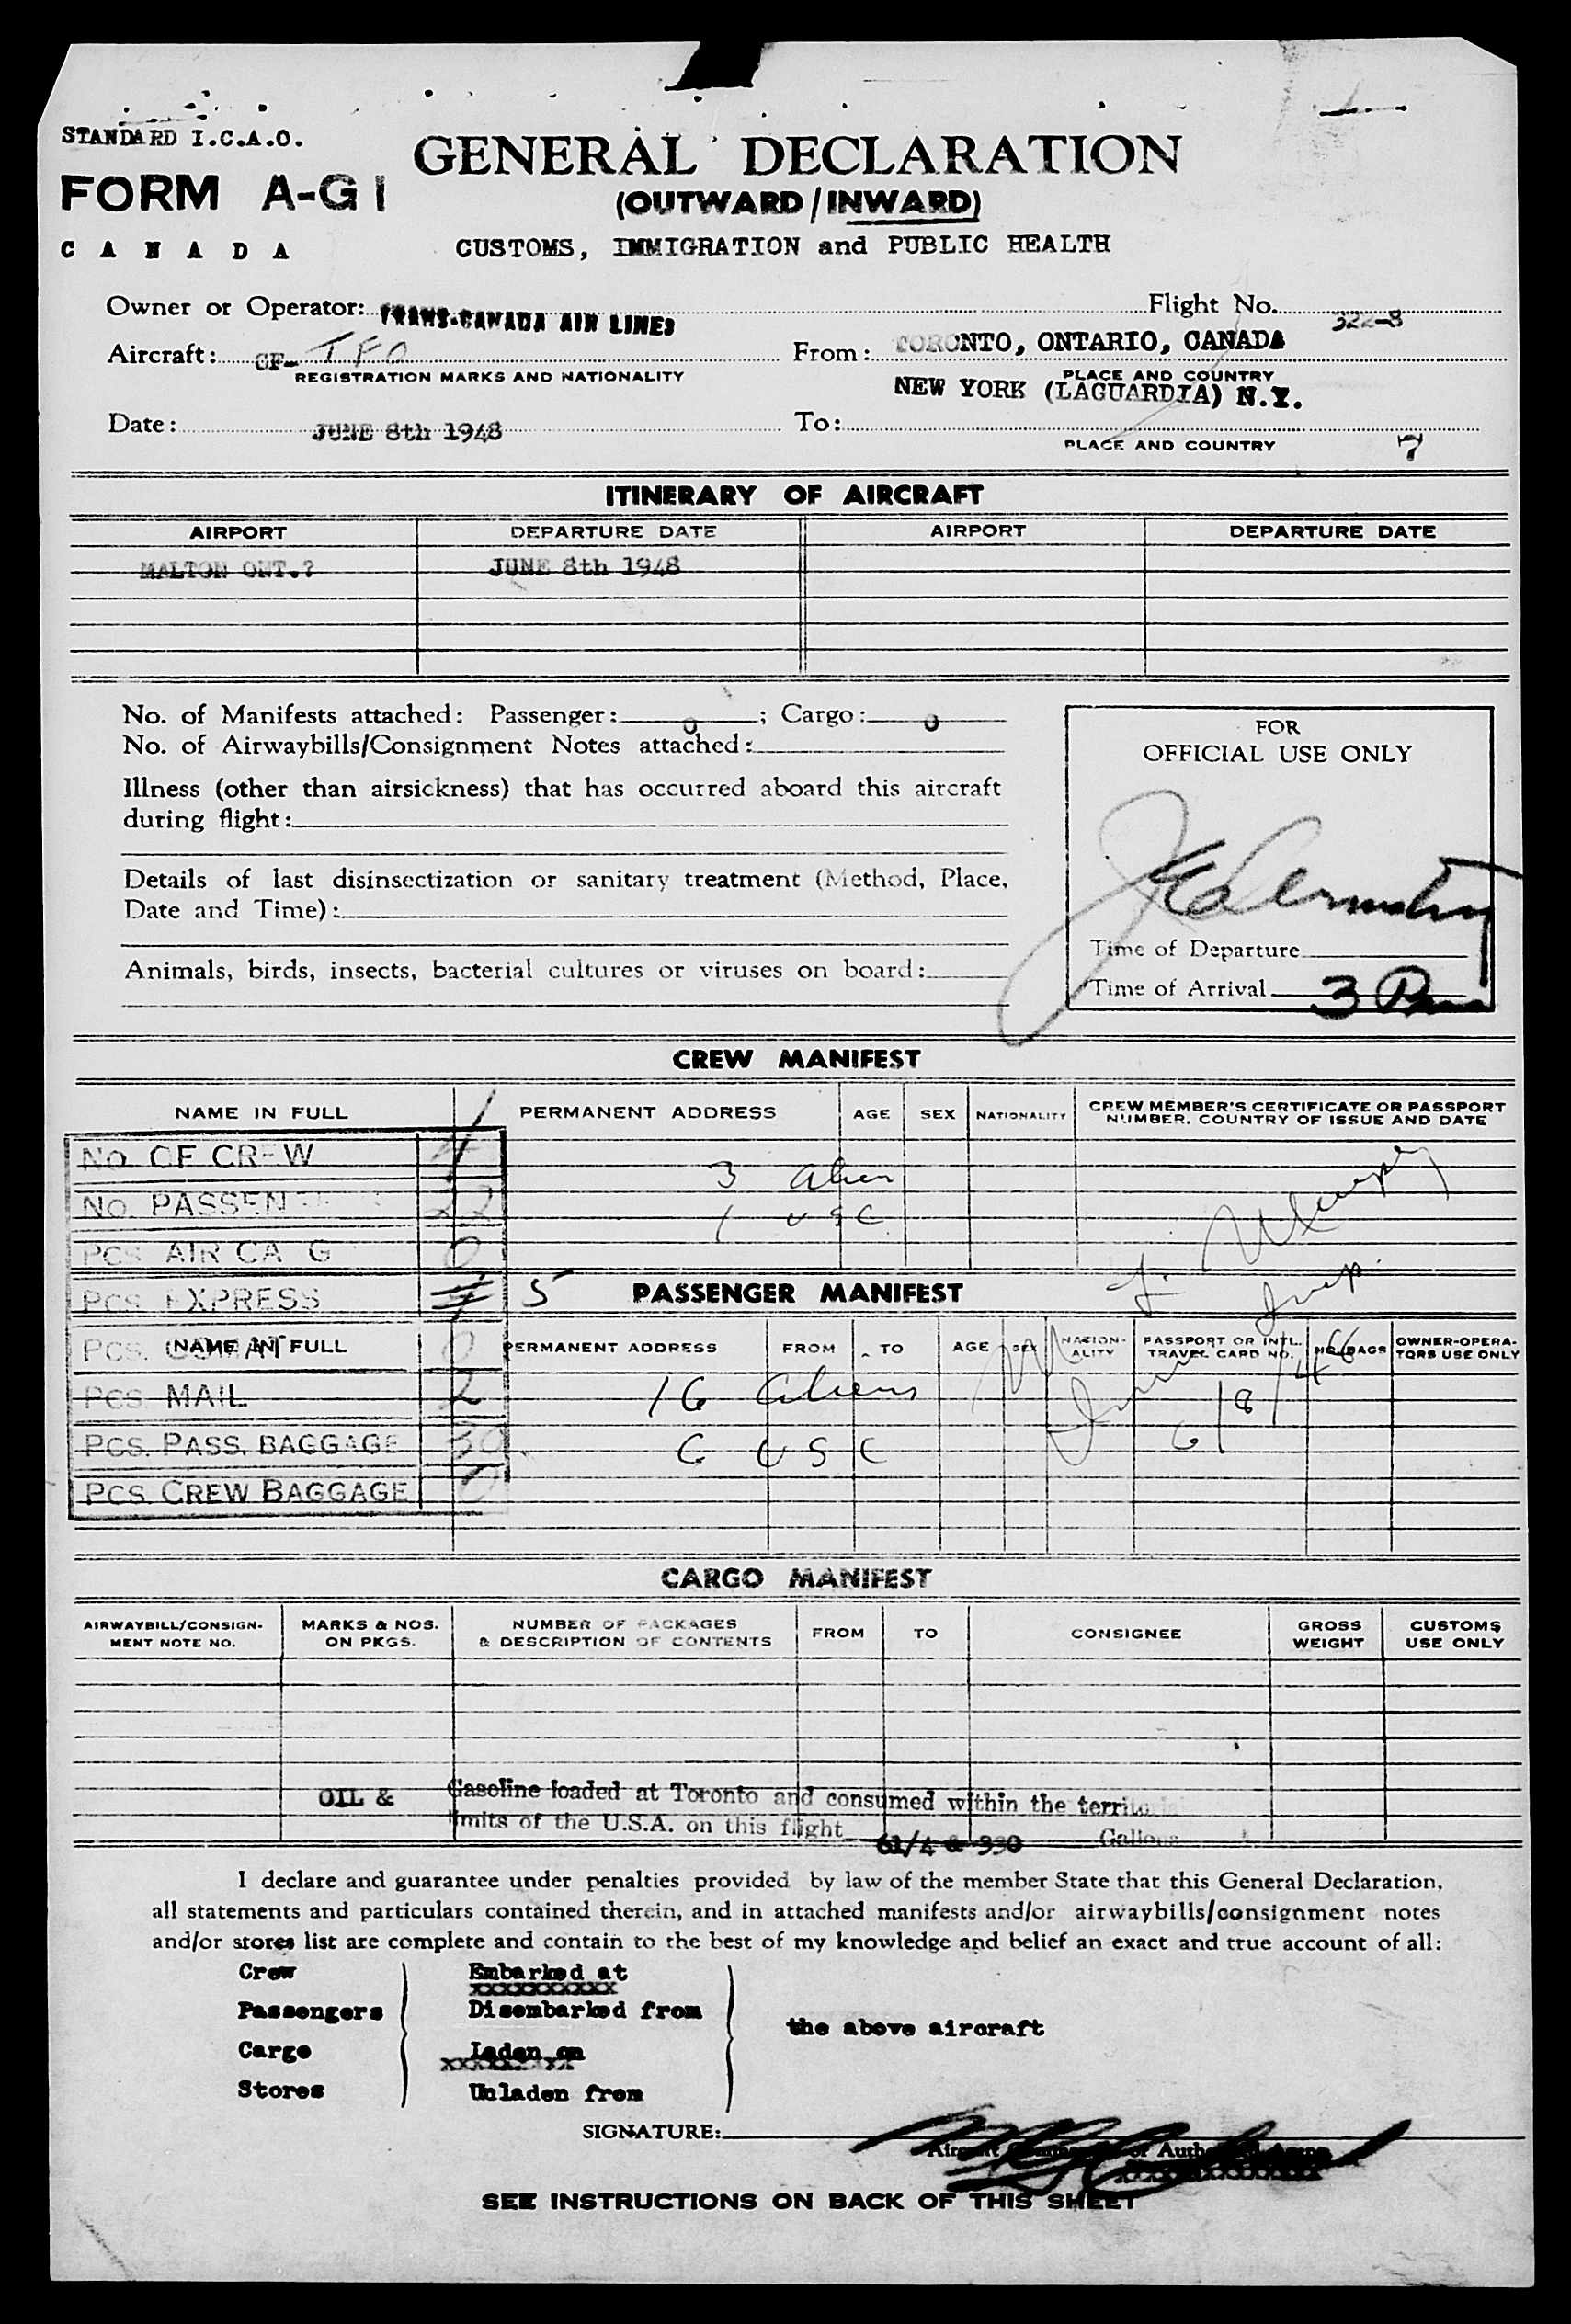 STANDARD I.C.A.O.
GENERAL DECLARATION
FORM A-G1
(OUTWARD/INWARD)
CANADA
CUSTOMS, IMMIGRATION and PUBLIC HEALTH
Owner or Operator: TRANS-CANADA AIR LINES Flight No. 322-8
Aircraft: CF- TFO From: TORONTO, ONTARIO, CANADA
REGISTRATION MARKS AND NATIONALITY PLACE AND COUNTRY
NEW YORK (LAGUARDIA) N.Y.
Date: JUNE 8th 1948 To:
PLACE AND COUNTRY 7
ITINERARY OF AIRCRAFT
AIRPORT DEPARTURE DATE AIRPORT DEPARTURE DATE
MALTON ONT.? JUNE 8th 1948
No. of Manifests attached: Passenger: 0; Cargo: 0
No. of Airwaybills/Consignment Notes attached:
Illness (other than airsickness) that has occurred aboard this aircraft
during flight:
Details of last disinsectization or sanitary treatment (Method, Place,
Date and Time):
Animals, birds, insects, bacterial cultures or viruses on board:
FOR
OFFICIAL USE ONLY
Time of Departure
Time of Arrival 3 Pm
CREW MANIFEST
NAME IN FULL PERMANENT ADDRESS AGE SEX NATIONALITY CREW MEMBER'S CERTIFICATE OR PASSPORT
NUMBER, COUNTRY OF ISSUE AND DATE
No. OF CREW 4
3 Alien
No. PASSEN 22
1 USC
PCS AIR CA G 0
PCS EXPRESS 5
PASSENGER MANIFEST
Insp.
NAME IN FULL PERMANENT ADDRESS FROM TO AGE SEX NATION-
ALITY PASSPORT OR INTL.
TRAVEL CARD NO. NO. BAGS OWNER-OPERA-
TORS USE ONLY
PCS. 0
PCS MAIL 2
16 Aliens
PCS. PASS. BAGGAGE 30
6 USC
6/8/48
PCS. CREW BAGGAGE 0
CARGO MANIFEST
AIRWAYBILL/CONSIGN-
MENT NOTE NO. MARKS & NOS.
ON PKGS. NUMBER OF PACKAGES
& DESCRIPTION OF CONTENTS FROM TO CONSIGNEE GROSS
WEIGHT CUSTOMS
USE ONLY
OIL & Gasoline loaded at Toronto and consumed within the territorial
limits of the U.S.A. on this flight 61/4 & 330 Gallons
I declare and guarantee under penalties provided by law of the member State that this General Declaration,
all statements and particulars contained therein, and in attached manifests and/or airwaybills/consignment notes
and/or stores list are complete and contain to the best of my knowledge and belief an exact and true account of all:
Crew Embarked at
xxxxxxxxxxx
Passengers Disembarked from
the above aircraft
Cargo Laden on
Stores Unladen from
SIGNATURE:
SEE INSTRUCTIONS ON BACK OF THIS SHEET